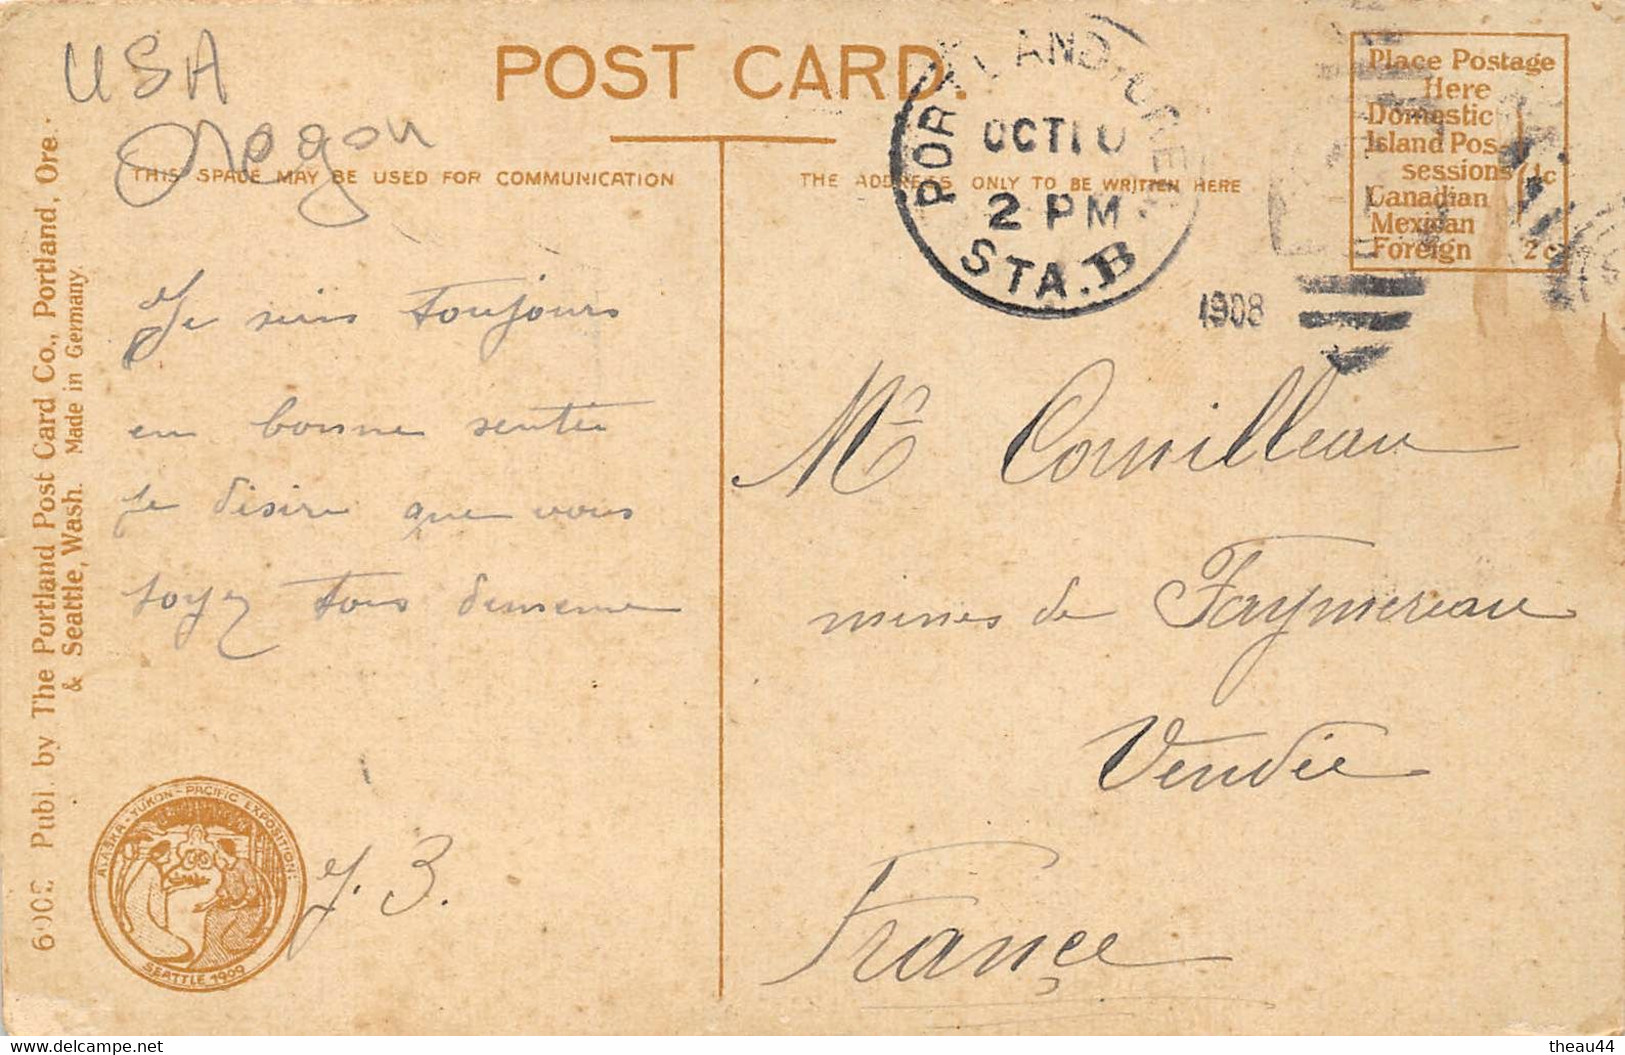 USA
Oregon
POST CARD.
THIS SPACE MAY BE USED FOR COMMUNICATION
THE ADDRESS ONLY TO BE WRITTEN HERE
PORTLAND, ORE.
OCT 10
2 PM
STA. B
1908
Place Postage
Here
Domestic
Island Pos-
sessions 1c
Canadian
Mexican
Foreign 2c
Je suis toujours
en bonne sentée
Je désire que vous
soyez tous de meme
J. B.
Mr Cornilleau
mines de Faymereau
Vendée
France
Publ. by The Portland Post Card Co., Portland, Ore.
& Seattle, Wash. Made in Germany.
ALASKA-YUKON-PACIFIC EXPOSITION
SEATTLE 1909
www.delcampe.net
theau44